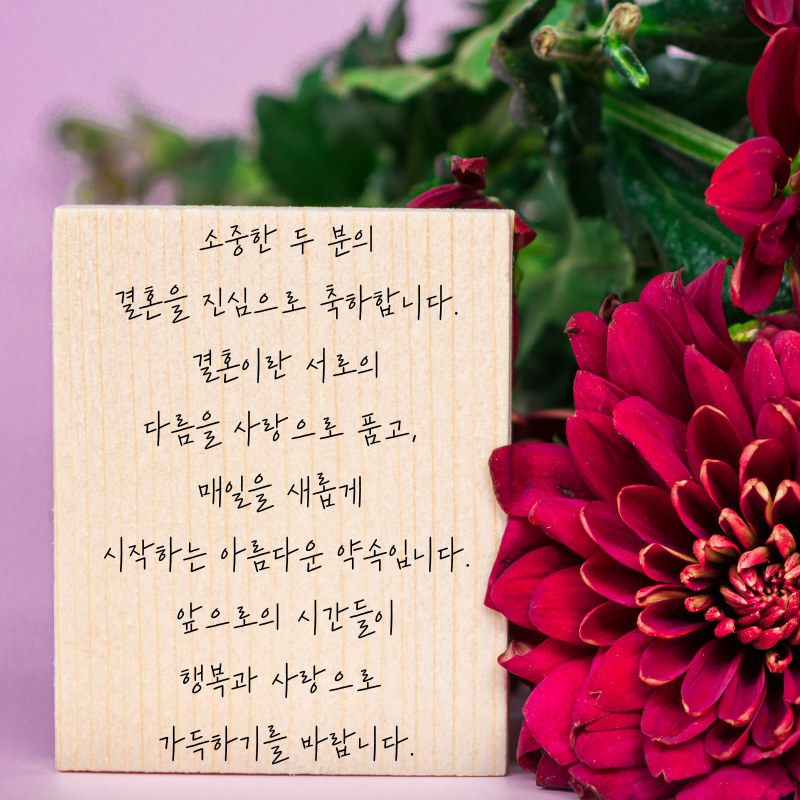 소중한 두 분의
결혼을 진심으로 축하합니다.
결혼이란 서로의
다름을 사랑으로 품고,
매일을 새롭게
시작하는 아름다운 약속입니다.
앞으로의 시간들이
행복과 사랑으로
가득하기를 바랍니다.